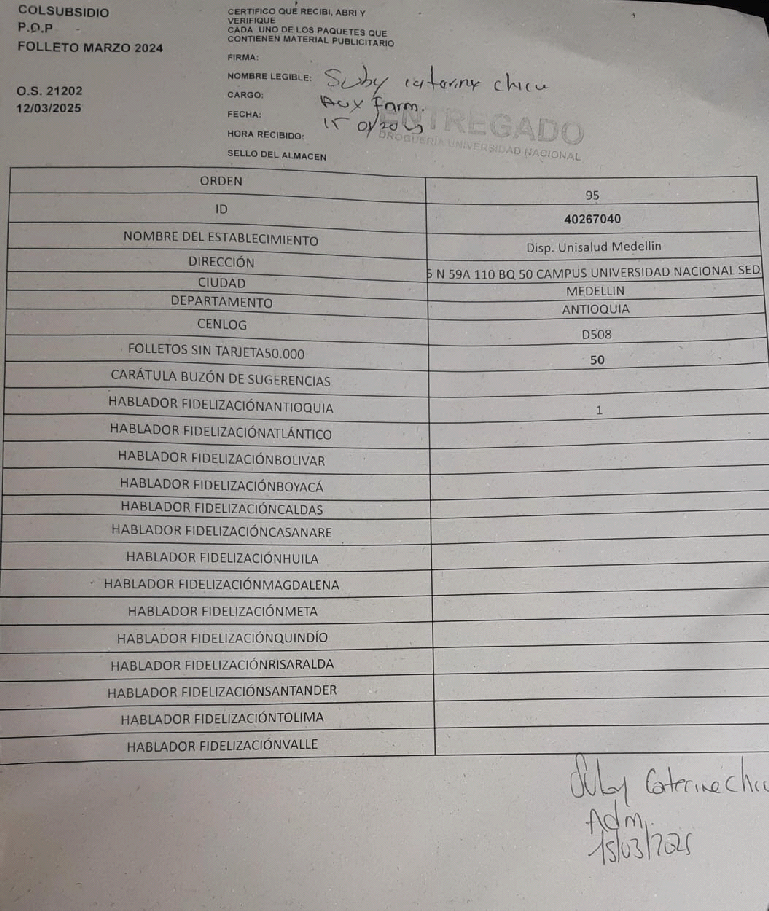 COLSUBSIDIO
P.O.P
FOLLETO MARZO 2024
O.S. 21202
12/03/2025
CERTIFICO QUE RECIBI, ABRI Y
VERIFIQUE
CADA UNO DE LOS PAQUETES QUE
CONTIENEN MATERIAL PUBLICITARIO
FIRMA:
NOMBRE LEGIBLE: caterine chica
CARGO: Aux farm.
FECHA: 15
HORA RECIBIDO:
SELLO DEL ALMACEN
ENTREGADO
DROGUERIA UNIVERSIDAD NACIONAL
ORDEN 95
ID 40267040
NOMBRE DEL ESTABLECIMIENTO Disp. Unisalud Medellin
DIRECCIÓN N 59A 110 BQ 50 CAMPUS UNIVERSIDAD NACIONAL SED
CIUDAD MEDELLIN
DEPARTAMENTO ANTIOQUIA
CENLOG D508
FOLLETOS SIN TARJETA50.000 50
CARÁTULA BUZÓN DE SUGERENCIAS
HABLADOR FIDELIZACIÓNANTIOQUIA 1
HABLADOR FIDELIZACIÓNATLÁNTICO
HABLADOR FIDELIZACIÓNBOLIVAR
HABLADOR FIDELIZACIÓNBOYACÁ
HABLADOR FIDELIZACIÓNCALDAS
HABLADOR FIDELIZACIÓNCASANARE
HABLADOR FIDELIZACIÓNHUILA
HABLADOR FIDELIZACIÓNMAGDALENA
HABLADOR FIDELIZACIÓNMETA
HABLADOR FIDELIZACIÓNQUINDÍO
HABLADOR FIDELIZACIÓNRISARALDA
HABLADOR FIDELIZACIÓNSANTANDER
HABLADOR FIDELIZACIÓNTOLIMA
HABLADOR FIDELIZACIÓNVALLE
Caterine Chica
Adm.
15/03/2025